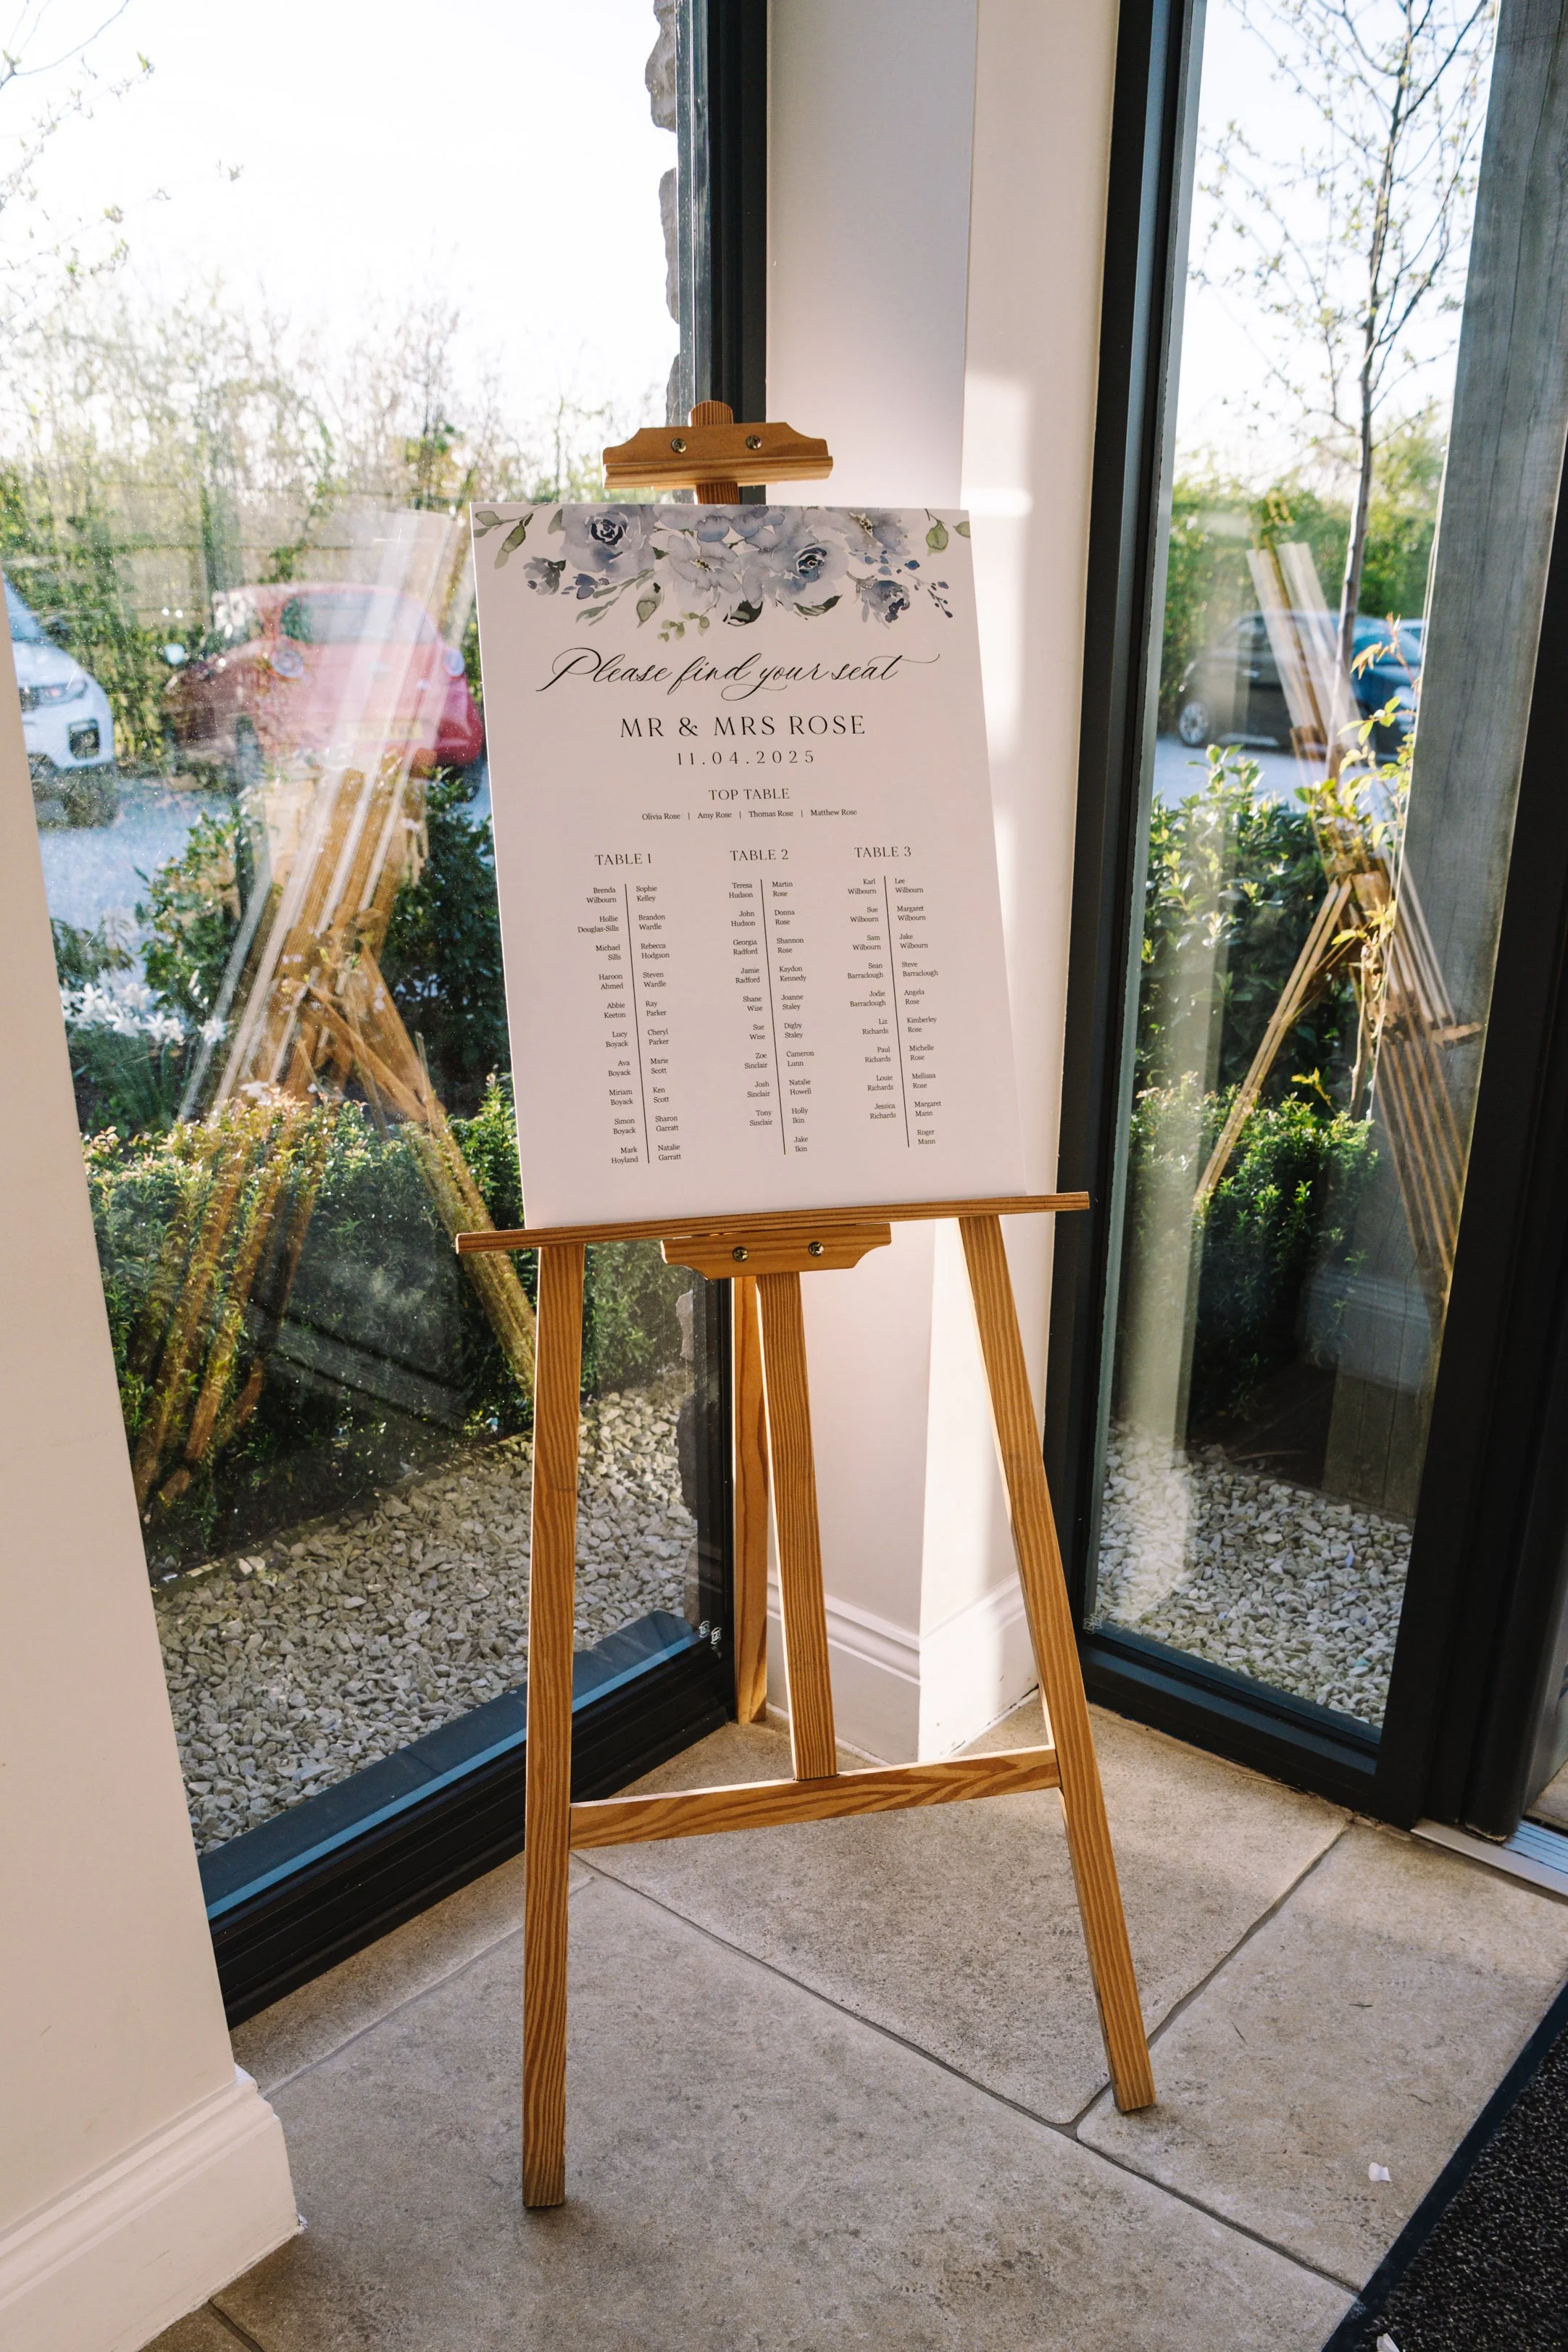 Please find your seat
MR & MRS ROSE
11.04.2025
TOP TABLE
Olivia Rose | Amy Rose | Thomas Rose | Matthew Rose
TABLE 1
Brenda
Wilbourn
Hollie
Douglas-Sills
Michael
Sills
Haroon
Ahmed
Abbie
Keeton
Lucy
Boyack
Ava
Boyack
Miriam
Boyack
Simon
Boyack
Mark
Hoyland
Sophie
Kelley
Brandon
Wardle
Rebecca
Hodgson
Steven
Wardle
Ray
Parker
Cheryl
Parker
Marie
Scott
Ken
Scott
Sharon
Garratt
Natalie
Garratt
TABLE 2
Teresa
Hudson
John
Hudson
Georgia
Radford
Jamie
Radford
Shane
Wise
Sue
Wise
Zoe
Sinclair
Josh
Sinclair
Tony
Sinclair
Martin
Rose
Donna
Rose
Shannon
Rose
Kaydon
Kennedy
Joanne
Staley
Digby
Staley
Cameron
Lunn
Natalie
Howell
Holly
Ikin
Jake
Ikin
TABLE 3
Karl
Wilbourn
Sue
Wilbourn
Sam
Wilbourn
Sean
Barraclough
Jodie
Barraclough
Liz
Richards
Paul
Richards
Louie
Richards
Jessica
Richards
Lee
Wilbourn
Margaret
Wilbourn
Jake
Wilbourn
Steve
Barraclough
Angela
Rose
Kimberley
Rose
Michelle
Rose
Mellissa
Rose
Margaret
Mann
Roger
Mann